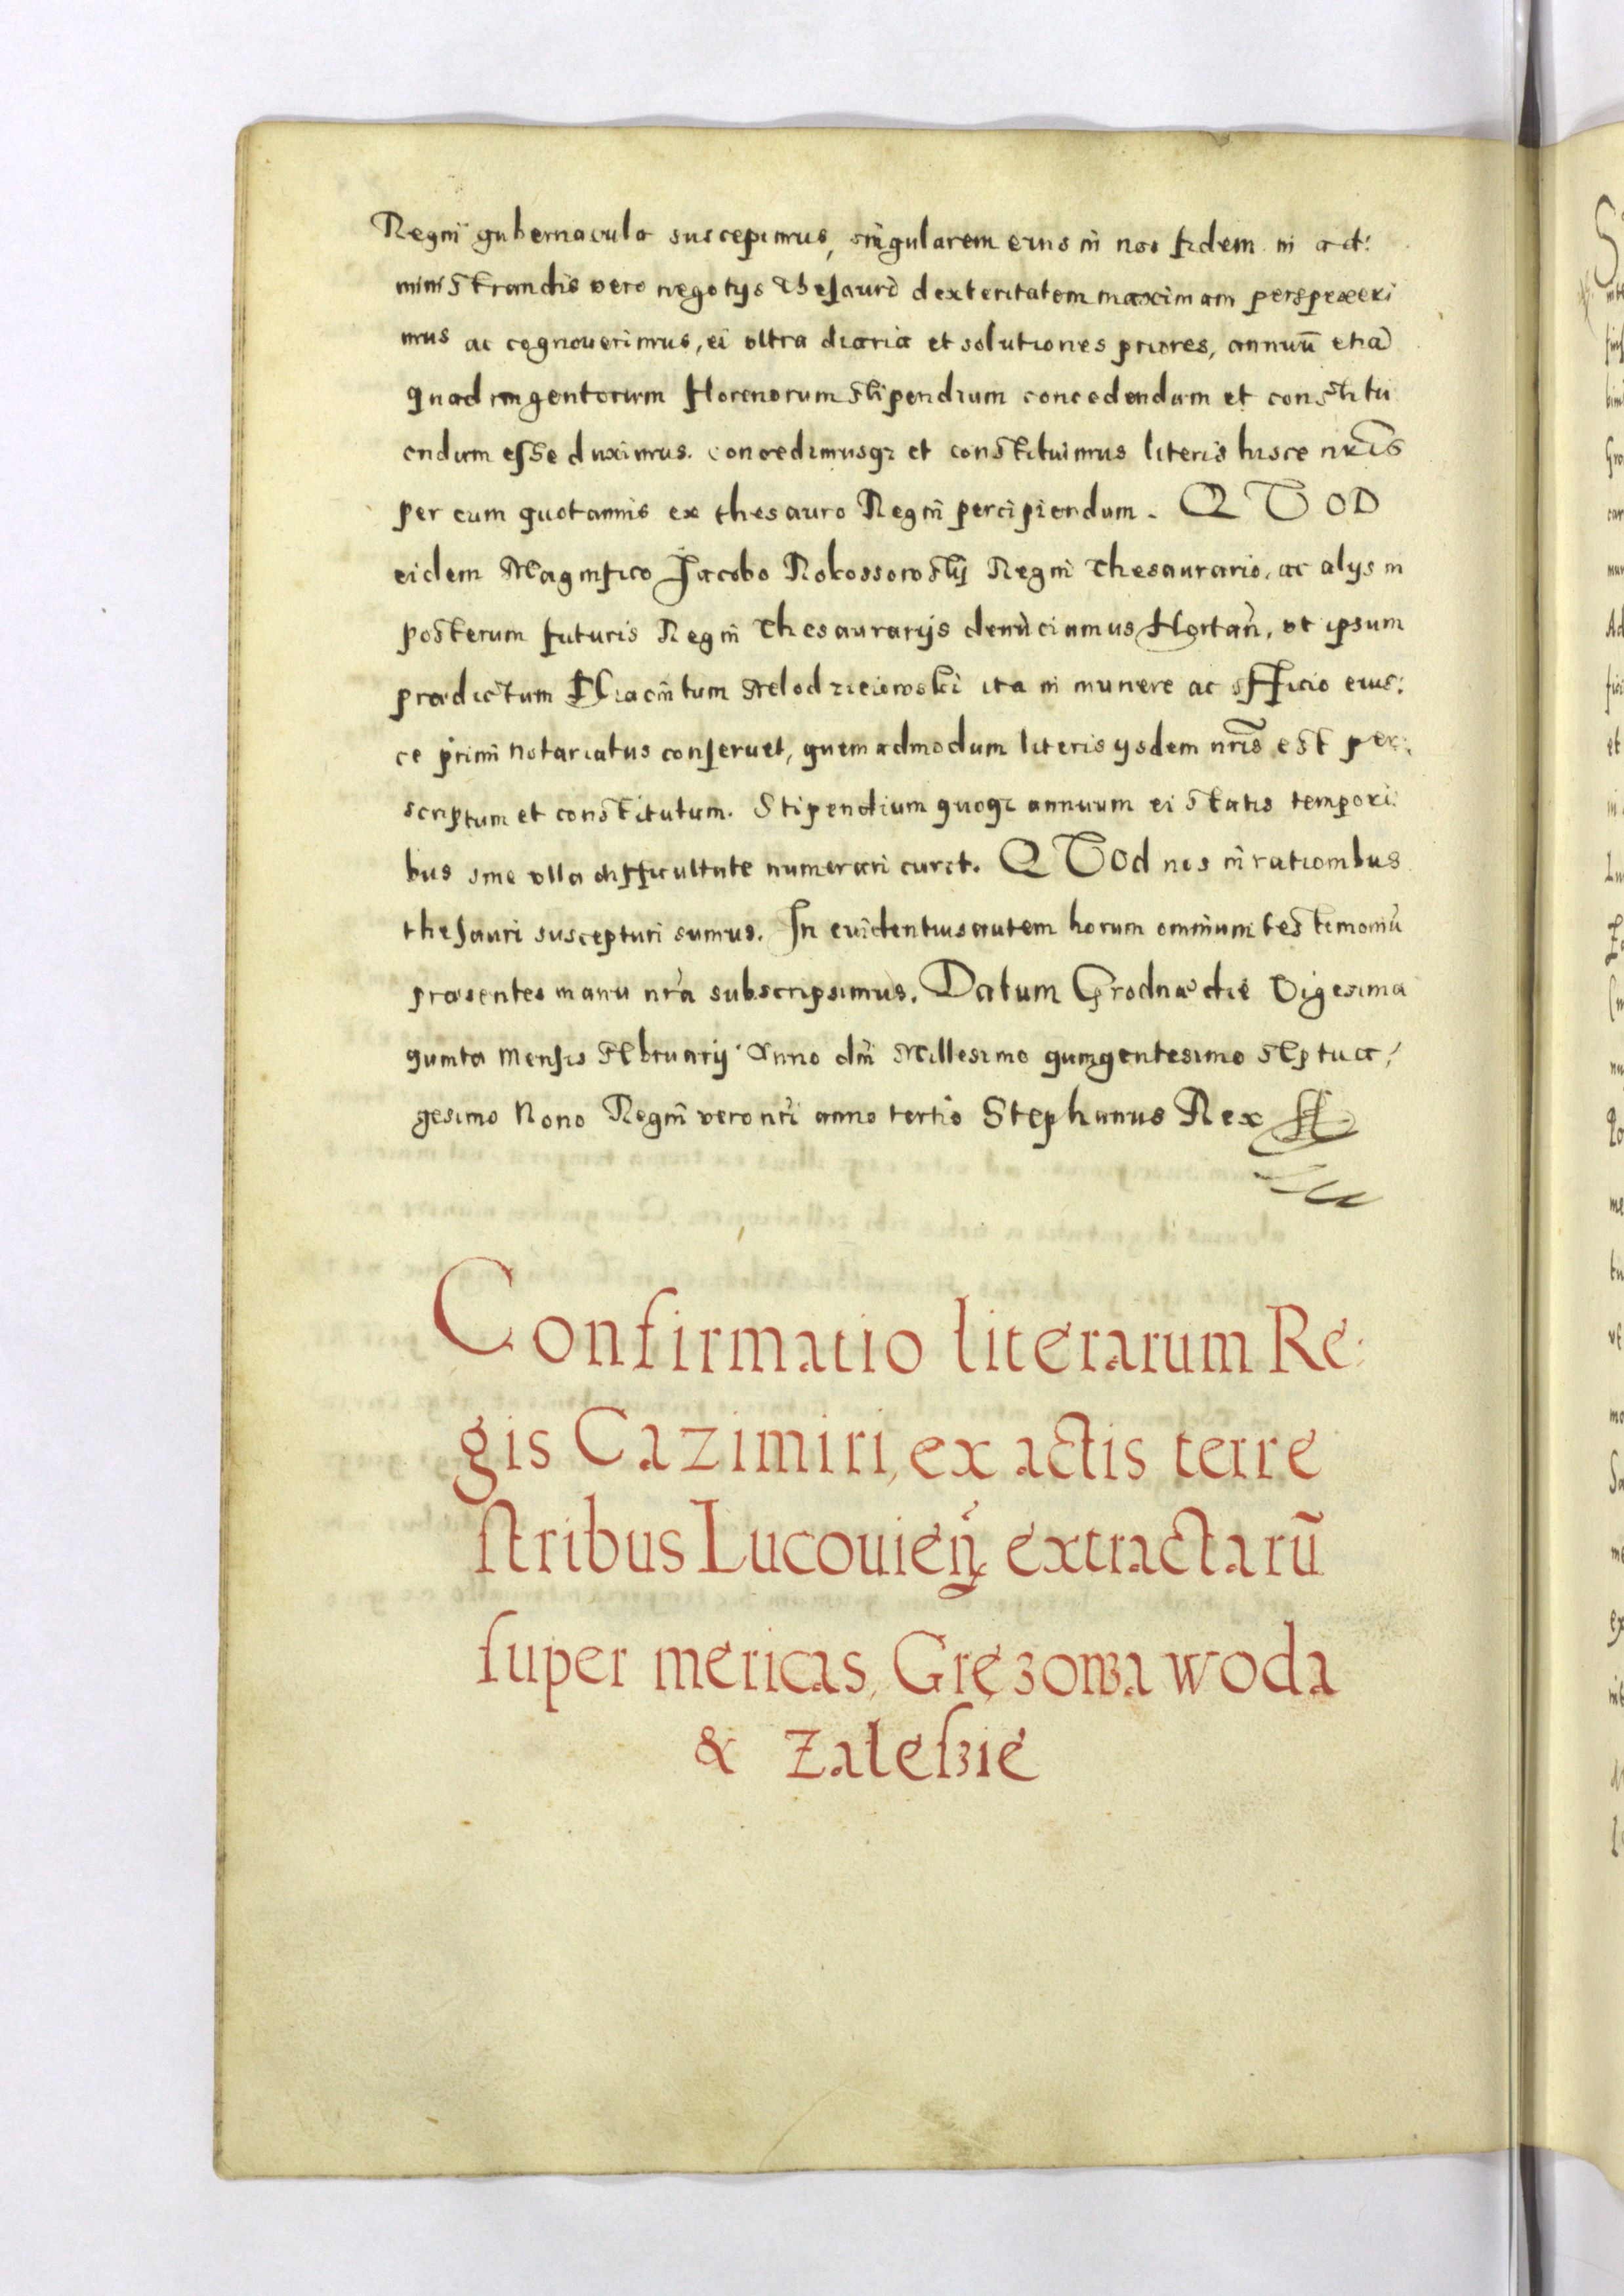 Regni gubernacula suscepimus, singularem eius in nos fidem in ad:
ministrandis vero negotys thesauri dexteritatem maximam perspexeri
mus ac cognouerimus, ei vltra diaria et solutiones priores, annuū etiā
quadringentorum florenorum stipendium concedendum et constitu
endum esse duximus. concedimusq; et constituimus literis hisce nr̃is
per eum quotannis ex thesauro Regni percipiendum. QVOD
eidem Magnifico Jacobo Rokossowskij Regni Thesaurario, ac alys in
posterum futuris Regni Thesaurarijs denūciamus Hortañ, vt ipsum
prædictum Hiacintum Mlodzieiowski ita in munere ac officio eius:
ce primi notariatus conseruet, quemadmodum literis ysdem nr̃is est per:
scriptum et constitutum. Stipendium quoq; annuum ei statis tempori:
bus sine vlla difficultate numerari curet. QVOd nos in rationibus
thesauri suscepturi sumus. In euidentius autem horum omnium testimoniū
præsentes manu nr̃a subscripsimus. Datum Grodnæ die Vigesima
quinta Mensis Februarij Anno dn̄i Millesimo quingentesimo Septua:
gesimo Nono Regni vero nr̃i anno tertio Stephanus Rex
Confirmatio literarum Re:
gis Cazimiri, ex actis terre
stribus Lucouieñ extractarū
super mericas, Gręzowa woda
& Zaleszie